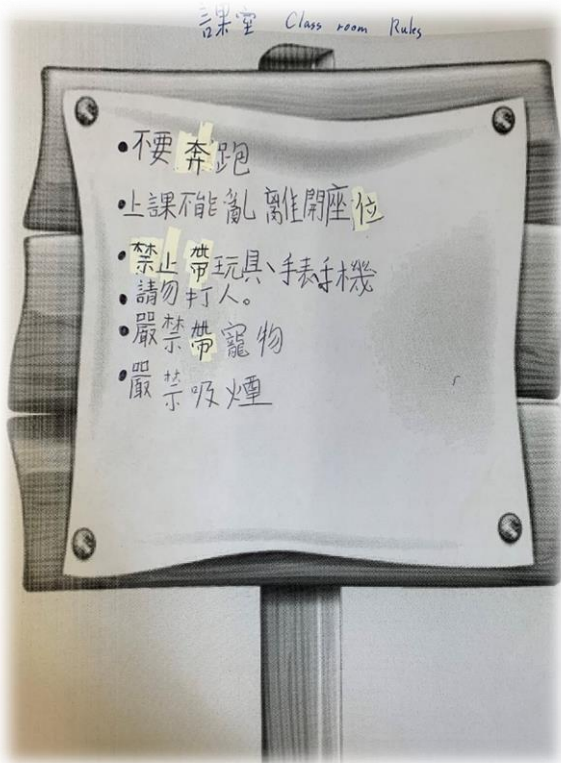 課室 Class room Rules
•不要奔跑
•上課不能亂離開座位
•禁止帶玩具、手表手機
•請勿打人。
•嚴禁帶寵物
•嚴禁吸煙